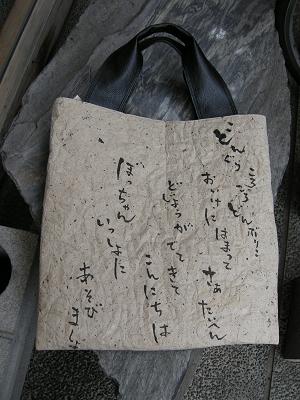 どんぐり
ころころ どんぶりこ
おいけに はまって
さぁ たいへん
どじょうが でてきて
こんにちは
ぼっちゃん
いっしょに
あそび
ましょ